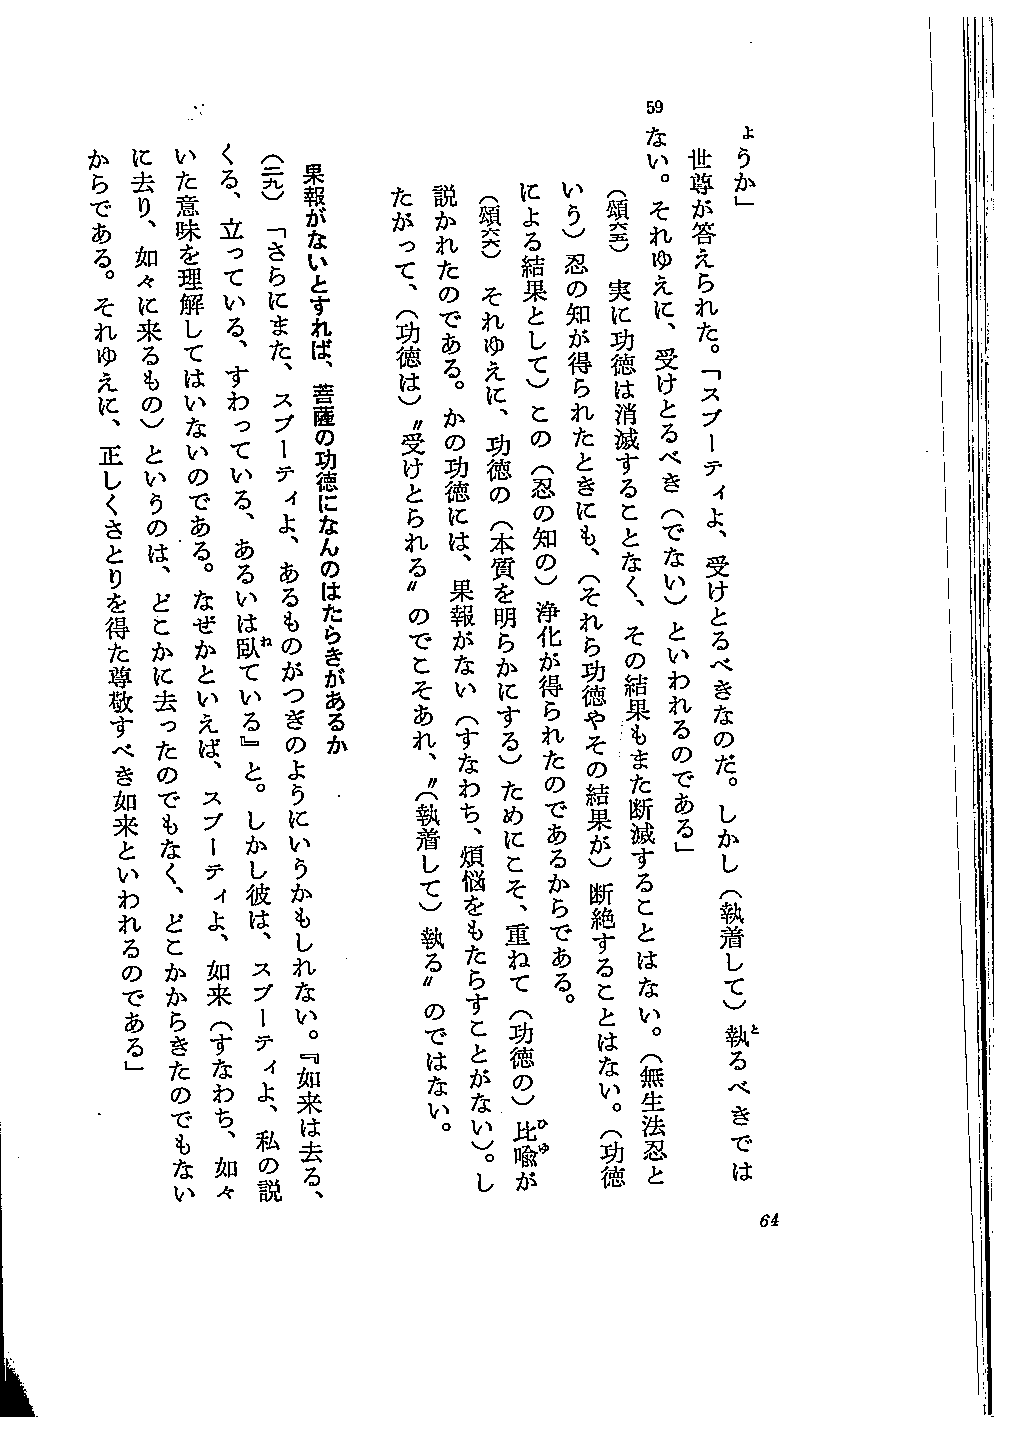 ょうか」
世尊が答えられた。「スブーティよ、受けとるべきなのだ。しかし（執着して）執るべきでは
59
ない。それゆえに、受けとるべき（でない）といわれるのである」
（頌六五）　実に功徳は消滅することなく、その結果もまた断滅することはない。（無生法忍と
いう）忍の知が得られたときにも、（それら功徳やその結果が）断絶することはない。（功徳
による結果として）この（忍の知の）浄化が得られたのであるからである。
（頌六六）　それゆえに、功徳の（本質を明らかにする）ためにこそ、重ねて（功徳の）比喩が
説かれたのである。かの功徳には、果報がない（すなわち、煩悩をもたらすことがない）。し
たがって、（功徳は）〝受けとられる〟のでこそあれ、〝（執着して）執る〟のではない。
果報がないとすれば、菩薩の功徳になんのはたらきがあるか
（二九）　「さらにまた、スブーティよ、あるものがつぎのようにいうかもしれない。『如来は去る、
くる、立っている、すわっている、あるいは臥ている』と。しかし彼は、スブーティよ、私の説
いた意味を理解してはいないのである。なぜかといえば、スブーティよ、如来（すなわち、如々
に去り、如々に来るもの）というのは、どこかに去ったのでもなく、どこかからきたのでもない
からである。それゆえに、正しくさとりを得た尊敬すべき如来といわれるのである」
64